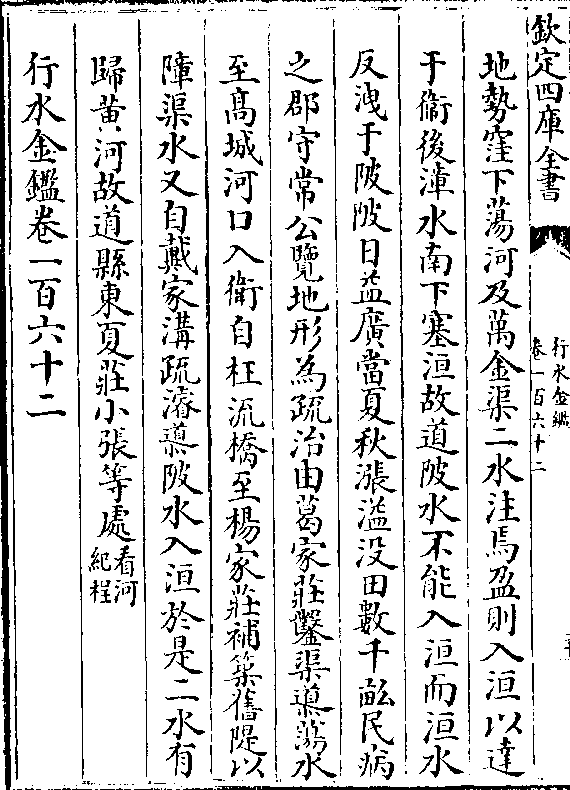 欽定四庫全書
行水金鑑
卷一百六十二
地勢窪下蕩河及萬金渠二水注焉盈則入洹以達
于衞後漳水南下塞洹故道陂水不能入洹而洹水
反洩于陂陂日益廣當夏秋漲溢没田數千畝民病
之郡守常公覽地形為疏治由葛家莊鑿渠導蕩水
至高城河口入衞自枉流橋至楊家莊補築舊隄以
障渠水又自戴家溝疏濬導陂水入洹於是二水有
歸黄河故道縣東夏莊小張等處看河紀程
行水金鑑卷一百六十二